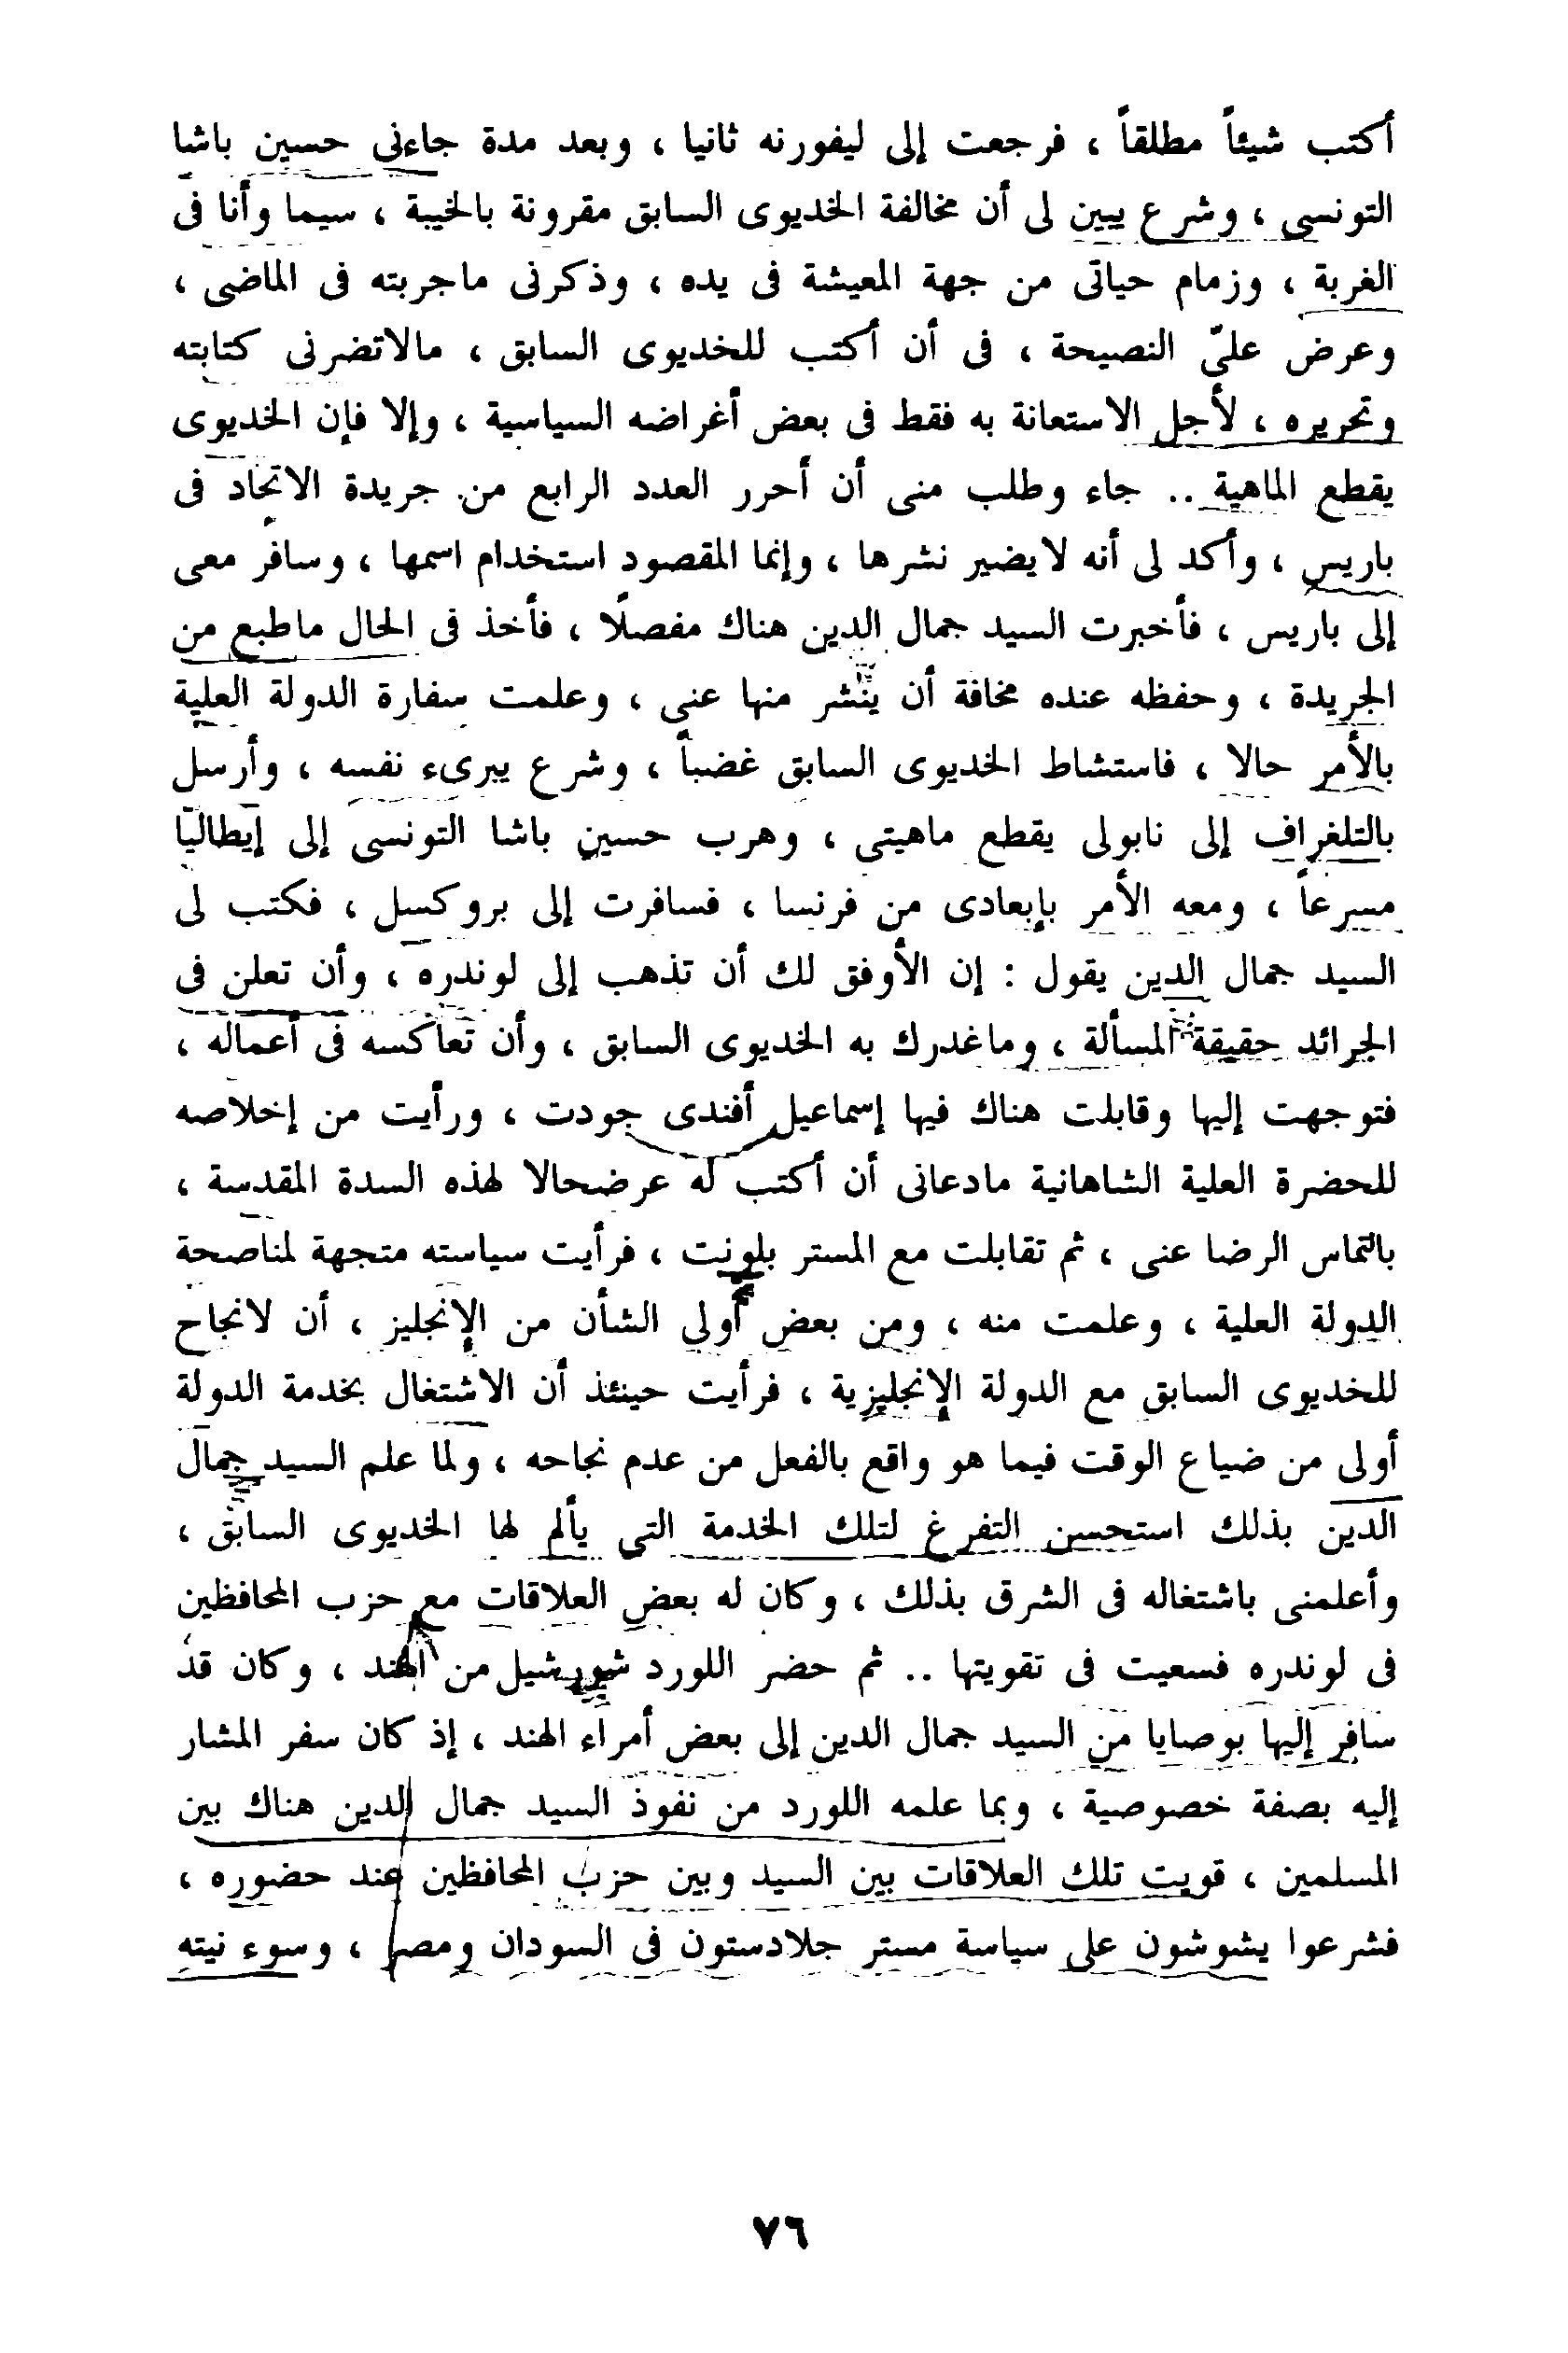 أكتب شيئاً مطلقاً ، فرجعت إلى ليفورنه ثانيا ، وبعد مدة جاءنى حسين باشا
التونسى ، وشرع يبين لى أن مخالفة الخديوى السابق مقرونة بالخيبة ، سيما وأنا فى
الغربة ، وزمام حياتى من جهة المعيشة فى يده ، وذكرنى ماجربته فى الماضى ،
وعرض علىّ النصيحة ، فى أن أكتب للخديوى السابق ، مالاتضرنى كتابته
وتحريره ، لأجل الاستعانة به فقط فى بعض أغراضه السياسية ، وإلا فإن الخديوى
يقطع الماهية .. جاء وطلب منى أن أحرر العدد الرابع من جريدة الاتحاد فى
باريس ، وأكد لى أنه لايضير نشرها ، وإنما المقصود استخدام اسمها ، وسافر معى
إلى باريس ، فأخبرت السيد جمال الدين هناك مفصلًا ، فأخذ فى الحال ماطبع من
الجريدة ، وحفظه عنده مخافة أن ينشر منها عنى ، وعلمت سفارة الدولة العلية
بالأمر حالا ، فاستشاط الخديوى السابق غضباً ، وشرع يبرىء نفسه ، وأرسل
بالتلغراف إلى نابولى يقطع ماهيتى ، وهرب حسين باشا التونسى إلى إيطاليا
مسرعاً ، ومعه الأمر بإبعادى من فرنسا ، فسافرت إلى بروكسل ، فكتب لى
السيد جمال الدين يقول : إن الأوفق لك أن تذهب إلى لوندره ، وأن تعلن فى
الجرائد حقيقة المسألة ، وماغدرك به الخديوى السابق ، وأن تعاكسه فى أعماله ،
فتوجهت إليها وقابلت هناك فيها إسماعيل أفندى جودت ، ورأيت من إخلاصه
للحضرة العلية الشاهانية مادعانى أن أكتب له عرضحالا لهذه السدة المقدسة ،
بالتماس الرضا عنى ، ثم تقابلت مع المستر بلونت ، فرأيت سياسته متجهة لمناصحة
الدولة العلية ، وعلمت منه ، ومن بعض أولى الشأن من الإنجليز ، أن لانجاح
للخديوى السابق مع الدولة الإنجليزية ، فرأيت حينئذ أن الاشتغال بخدمة الدولة
أولى من ضياع الوقت فيما هو واقع بالفعل من عدم نجاحه ، ولما علم السيد جمال
الدين بذلك استحسن التفرغ لتلك الخدمة التى يألم لها الخديوى السابق ،
وأعلمنى باشتغاله فى الشرق بذلك ، وكان له بعض العلاقات مع حزب المحافظين
فى لوندره فسعيت فى تقويتها .. ثم حضر اللورد شورشيل من الهند ، وكان قد
سافر إليها بوصايا من السيد جمال الدين إلى بعض أمراء الهند ، إذ كان سفر المشار
إليه بصفة خصوصية ، وبما علمه اللورد من نفوذ السيد جمال الدين هناك بين
المسلمين ، قويت تلك العلاقات بين السيد وبين حزب المحافظين عند حضوره ،
فشرعوا يشوشون على سياسة مستر جلادستون فى السودان ومصر ، وسوء نيته
٧٦